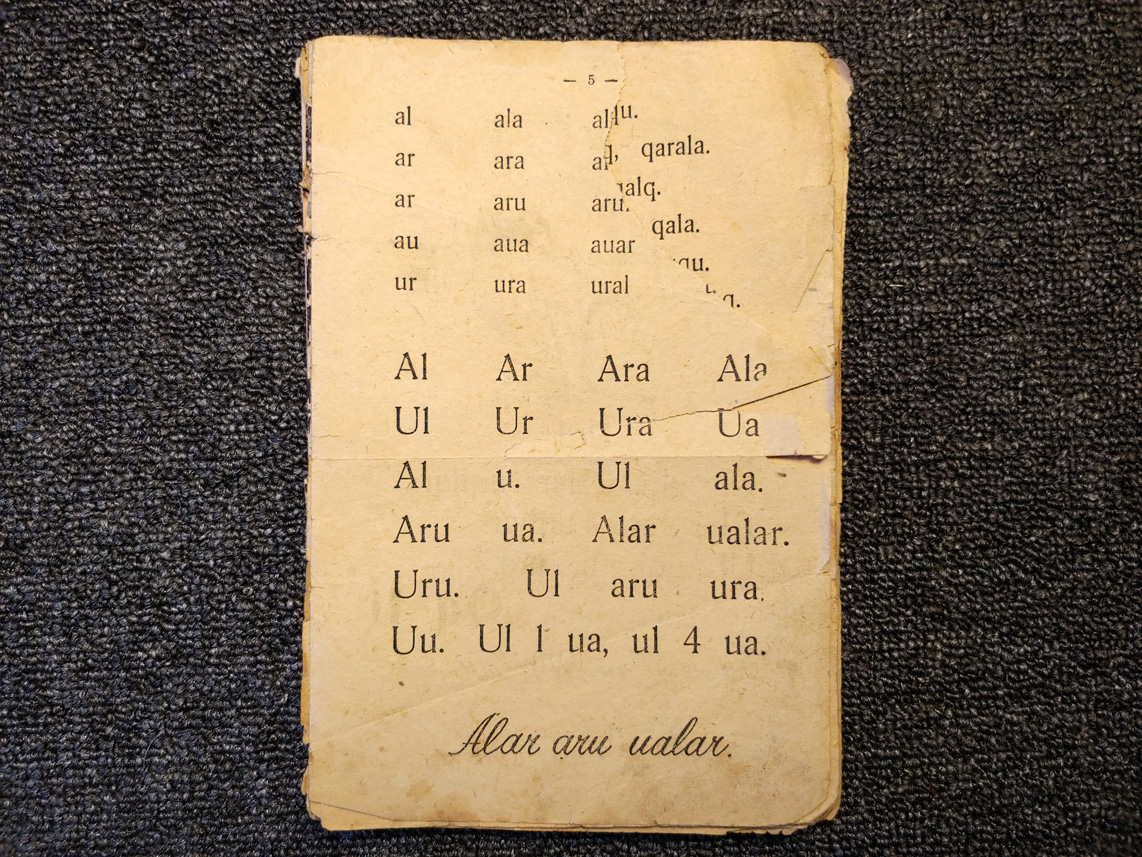 — 5 —
al ala
ar ara qarala.
ar aru aru.
au aua auar qala.
ur ura ural
Al Ar Ara Ala
Ul Ur Ura Ua
Al u. Ul ala.
Aru ua. Alar ualar.
Uru. Ul aru ura.
Uu. Ul 1 ua, ul 4 ua.
Alar aru ualar.